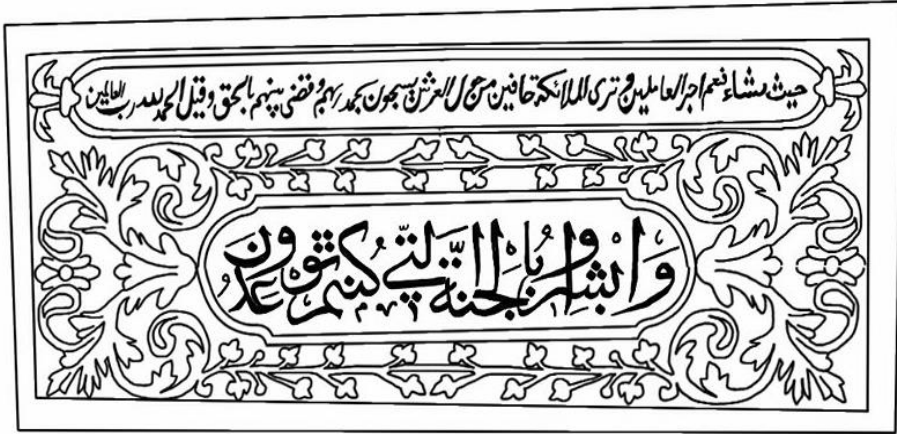 حيث نشاء فنعم اجر العاملين وترى الملائكة حافين من حول العرش يسبحون بحمد ربهم وقضى بينهم بالحق وقيل الحمد لله رب العالمين
وابشروا بالجنة التي كنتم توعدون